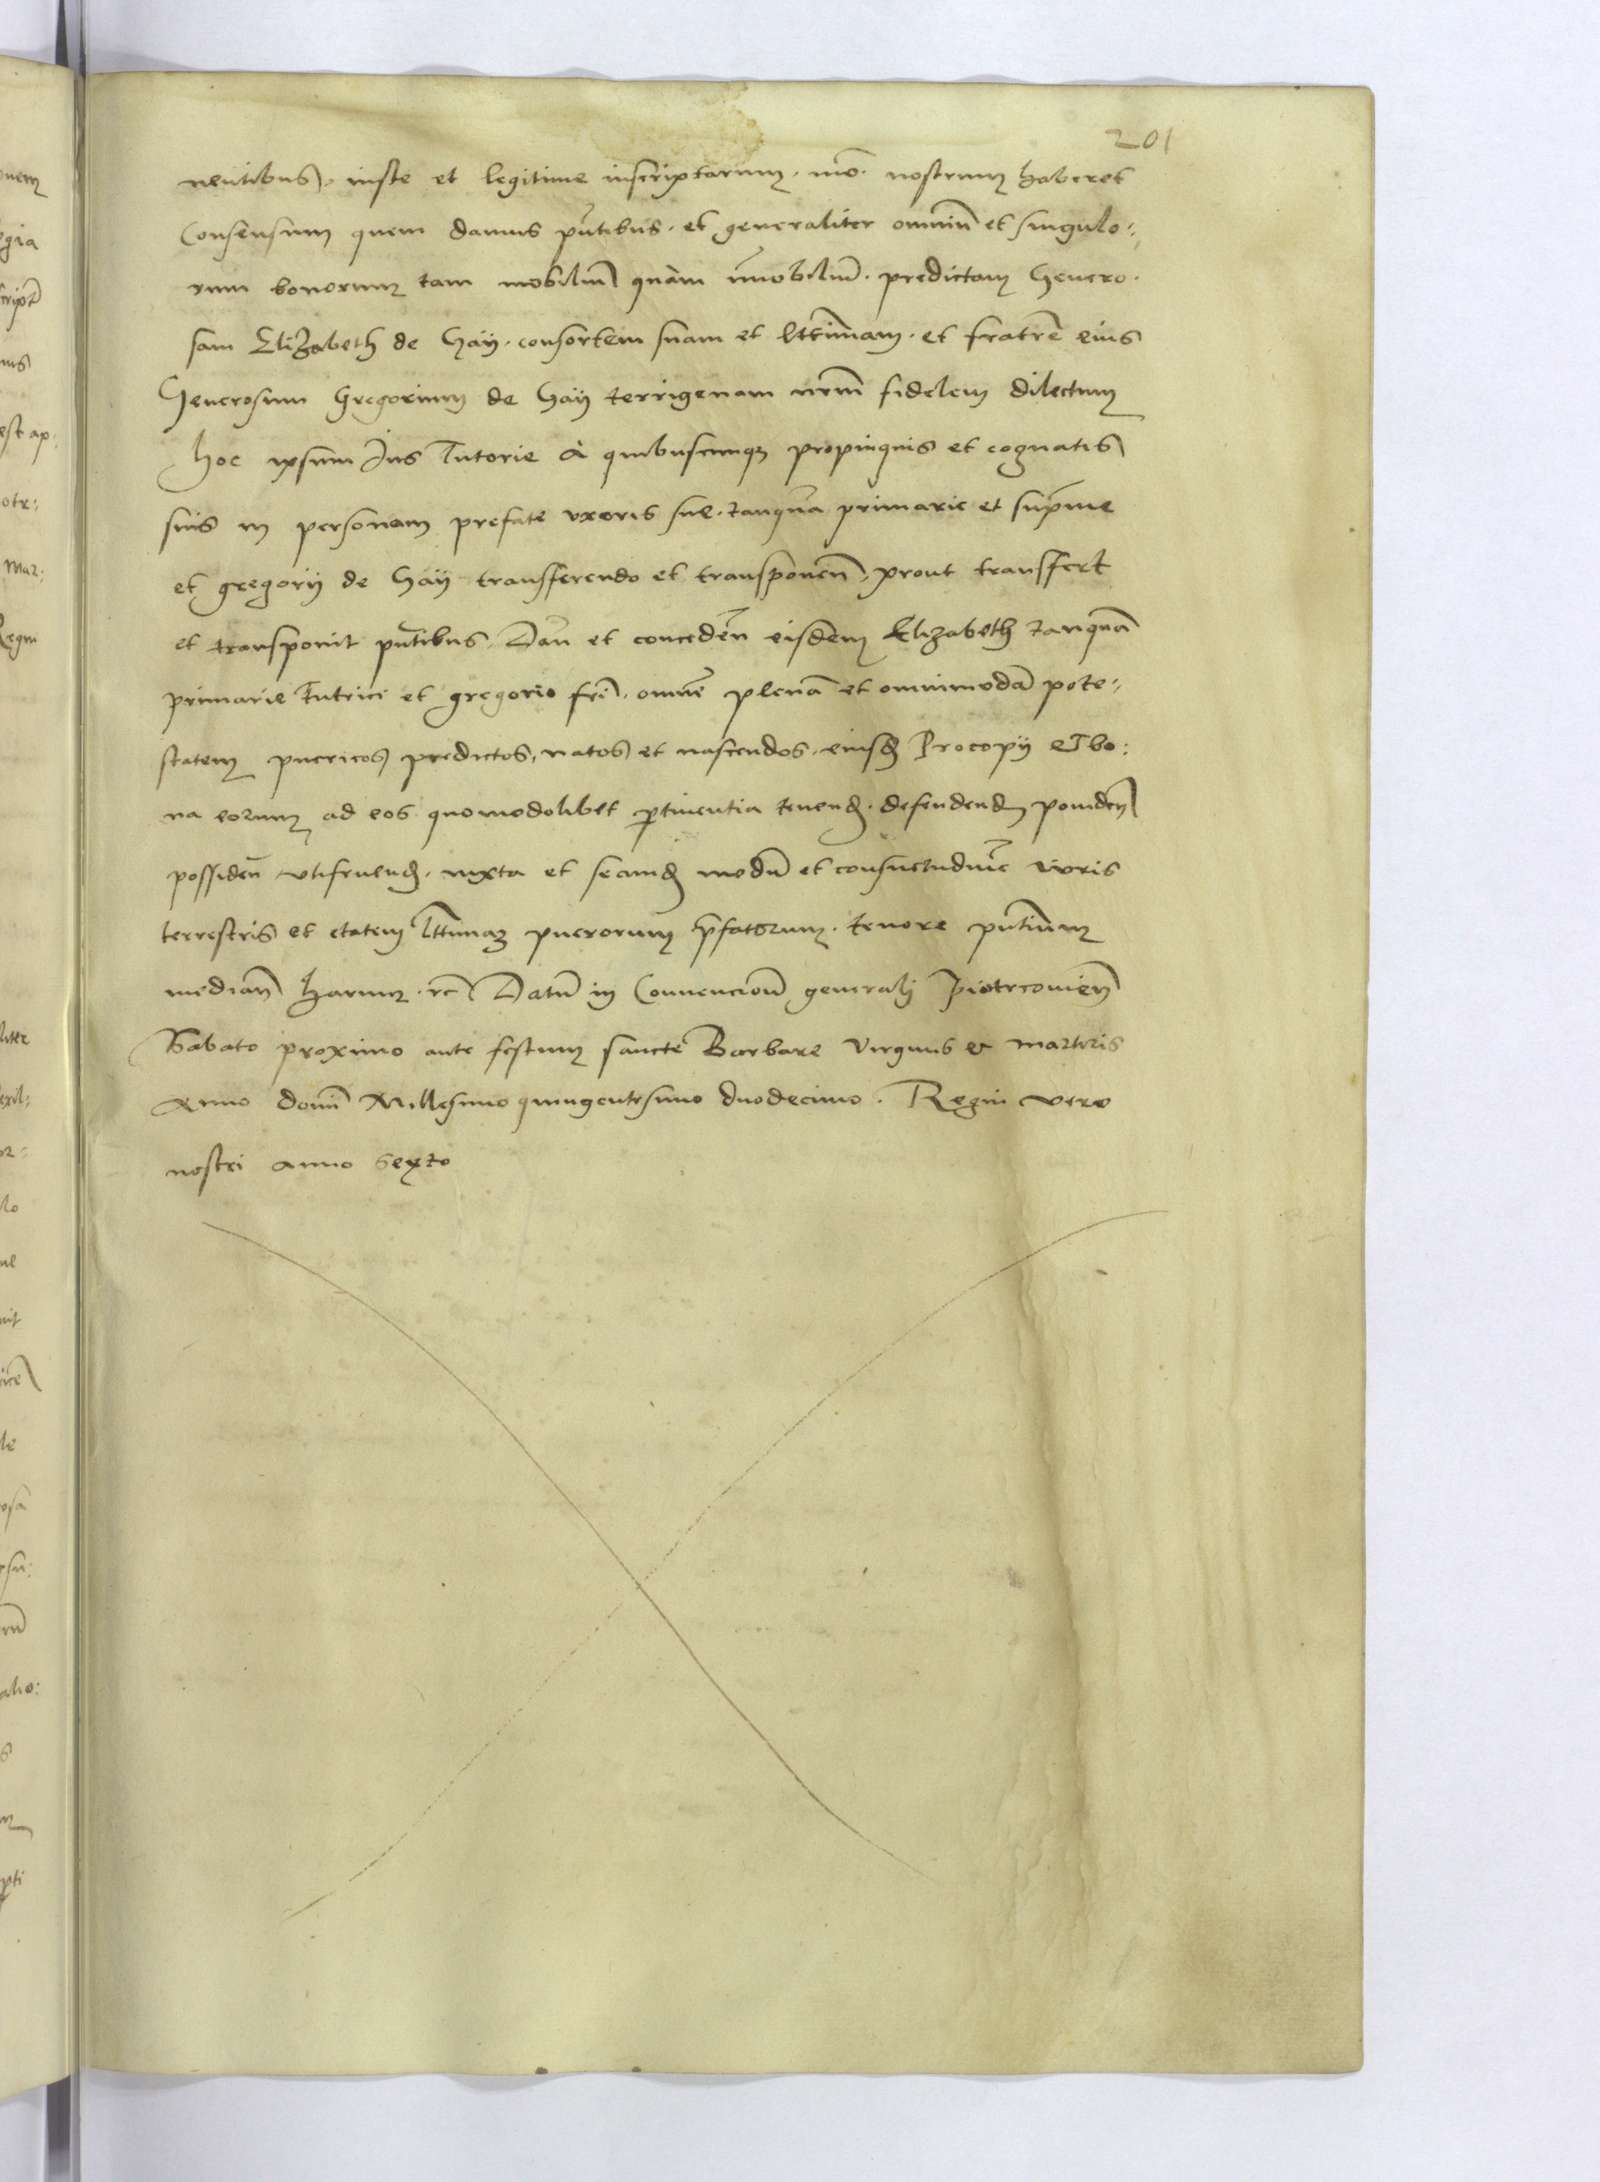 201
nentibus, iuste et legitime inscriptarum. mo. nostrum haberet
Consensum quem damus pntibus. et generaliter omniu et singulo:
rum bonorum tam mobiliu quam immobiliu. predictam Genero.
sam Elizabeth de Gay. consortem suam et lttimam. et fratre eius
Generosum Gregorium de Gay terrigenam nrm fidelem dilectum
hoc ipsum Ius Tutorie A quibuscunq propinquis et cognatis
suis in personam prefate vxoris sue. tanqua primarie et supme
et gregorij de Gay transferendo et transponen, prout transfert
et transponit pntibus. Dan et conceden eisdem Elizabeth tanqua
primarie Tutrici et gregorio fri. omne plena et omnimoda pote:
statem puericos predictos, natos et nascendos. eiusd Procopij Et bo:
na eorum ad eos quomodolibet ptinentia tenend. defendend
possiden vtifruend. iuxta et secund modu et consuetudine iuris
terrestris et etatem lttimaz puerorum pfatorum. tenore pntium
median harum. rc Datu in Convencione generali Piotrcovien
Sabato proximo ante festum sancte Barbare virginis et martiris
Anno domi Millesimo quingentesimo duodecimo. Regni vero
nostri anno sexto